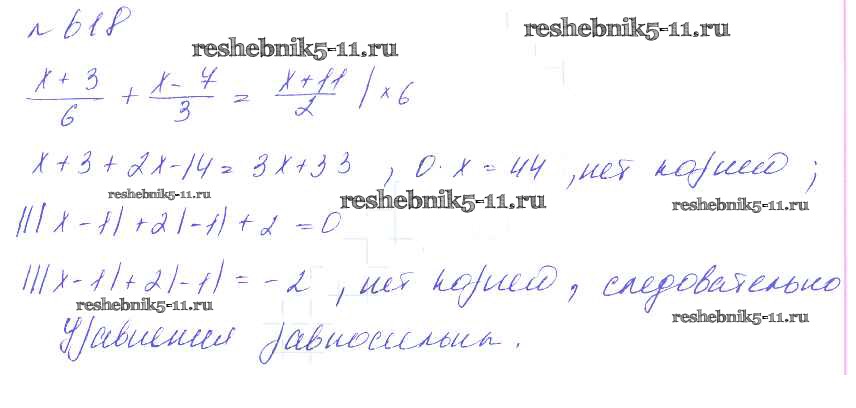 №618
reshebnik5-11.ru reshebnik5-11.ru
(x + 3)/6 + (x - 7)/3 = (x + 11)/2 | × 6
x + 3 + 2x - 14 = 3x + 33 , 0 · x = 44 , нет корней ;
reshebnik5-11.ru reshebnik5-11.ru reshebnik5-11.ru
|||x - 1| + 2| - 1| + 2 = 0
|||x - 1| + 2| - 1| = - 2 , нет корней , следовательно
reshebnik5-11.ru reshebnik5-11.ru
Уравнения равносильны.